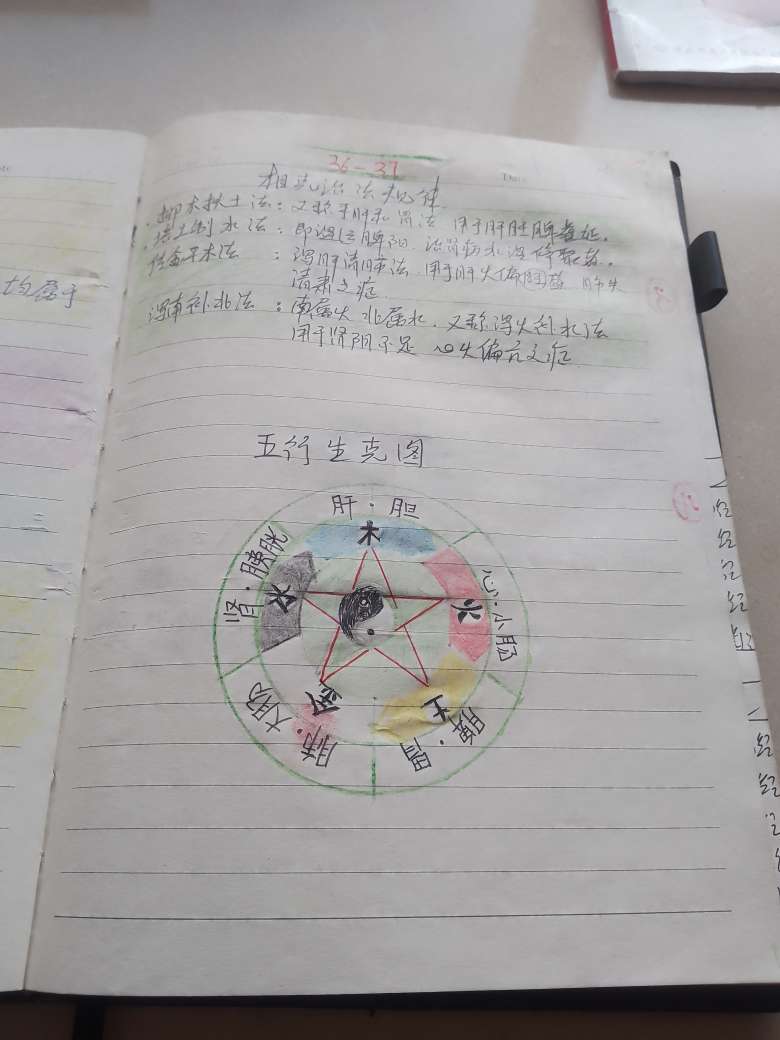 均属于
36-37
相克治法规律
抑木扶土法：又称平肝和胃法 用于肝旺脾虚证.
培土制水法：即温运脾阳.治
佐金平木法：泻肝清肺法.用于肝火偏 肺失
清肃之症
泻南补北法：南属火 北属水.又称泻火补水法
用于肾阴不足 心火偏亢之症
五行生克图
肝·胆
木
心·小肠
火
脾·胃
土
肺·大肠
金
肾·膀胱
水